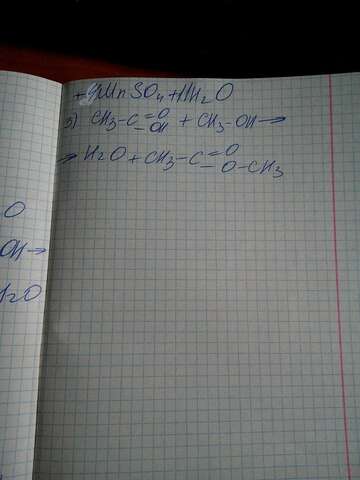 +4MnSO₄+11H₂O
3) CH₃-C=O-OH + CH₃-OH→
→ H₂O + CH₃-C=O-O-CH₃
O
OH→
H₂O